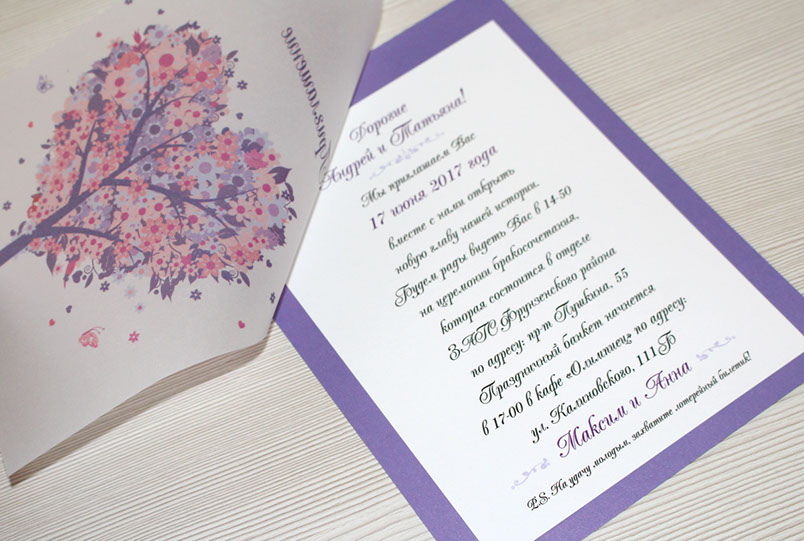 Приглашение
Дорогие
Андрей и Татьяна!
Мы приглашаем Вас
17 июня 2017 года
вместе с нами открыть
новую главу нашей истории.
Будем рады видеть Вас в 14-50
на церемонии бракосочетания,
которая состоится в отделе
ЗАГС Фрунзенского района
по адресу: пр-т Пушкина, 55
Праздничный банкет начнется
в 17-00 в кафе «Олимпиец» по адресу:
ул. Калиновского, 111Б
Максим и Анна
P.S. На удачу молодым, захватите лотерейный билетик!